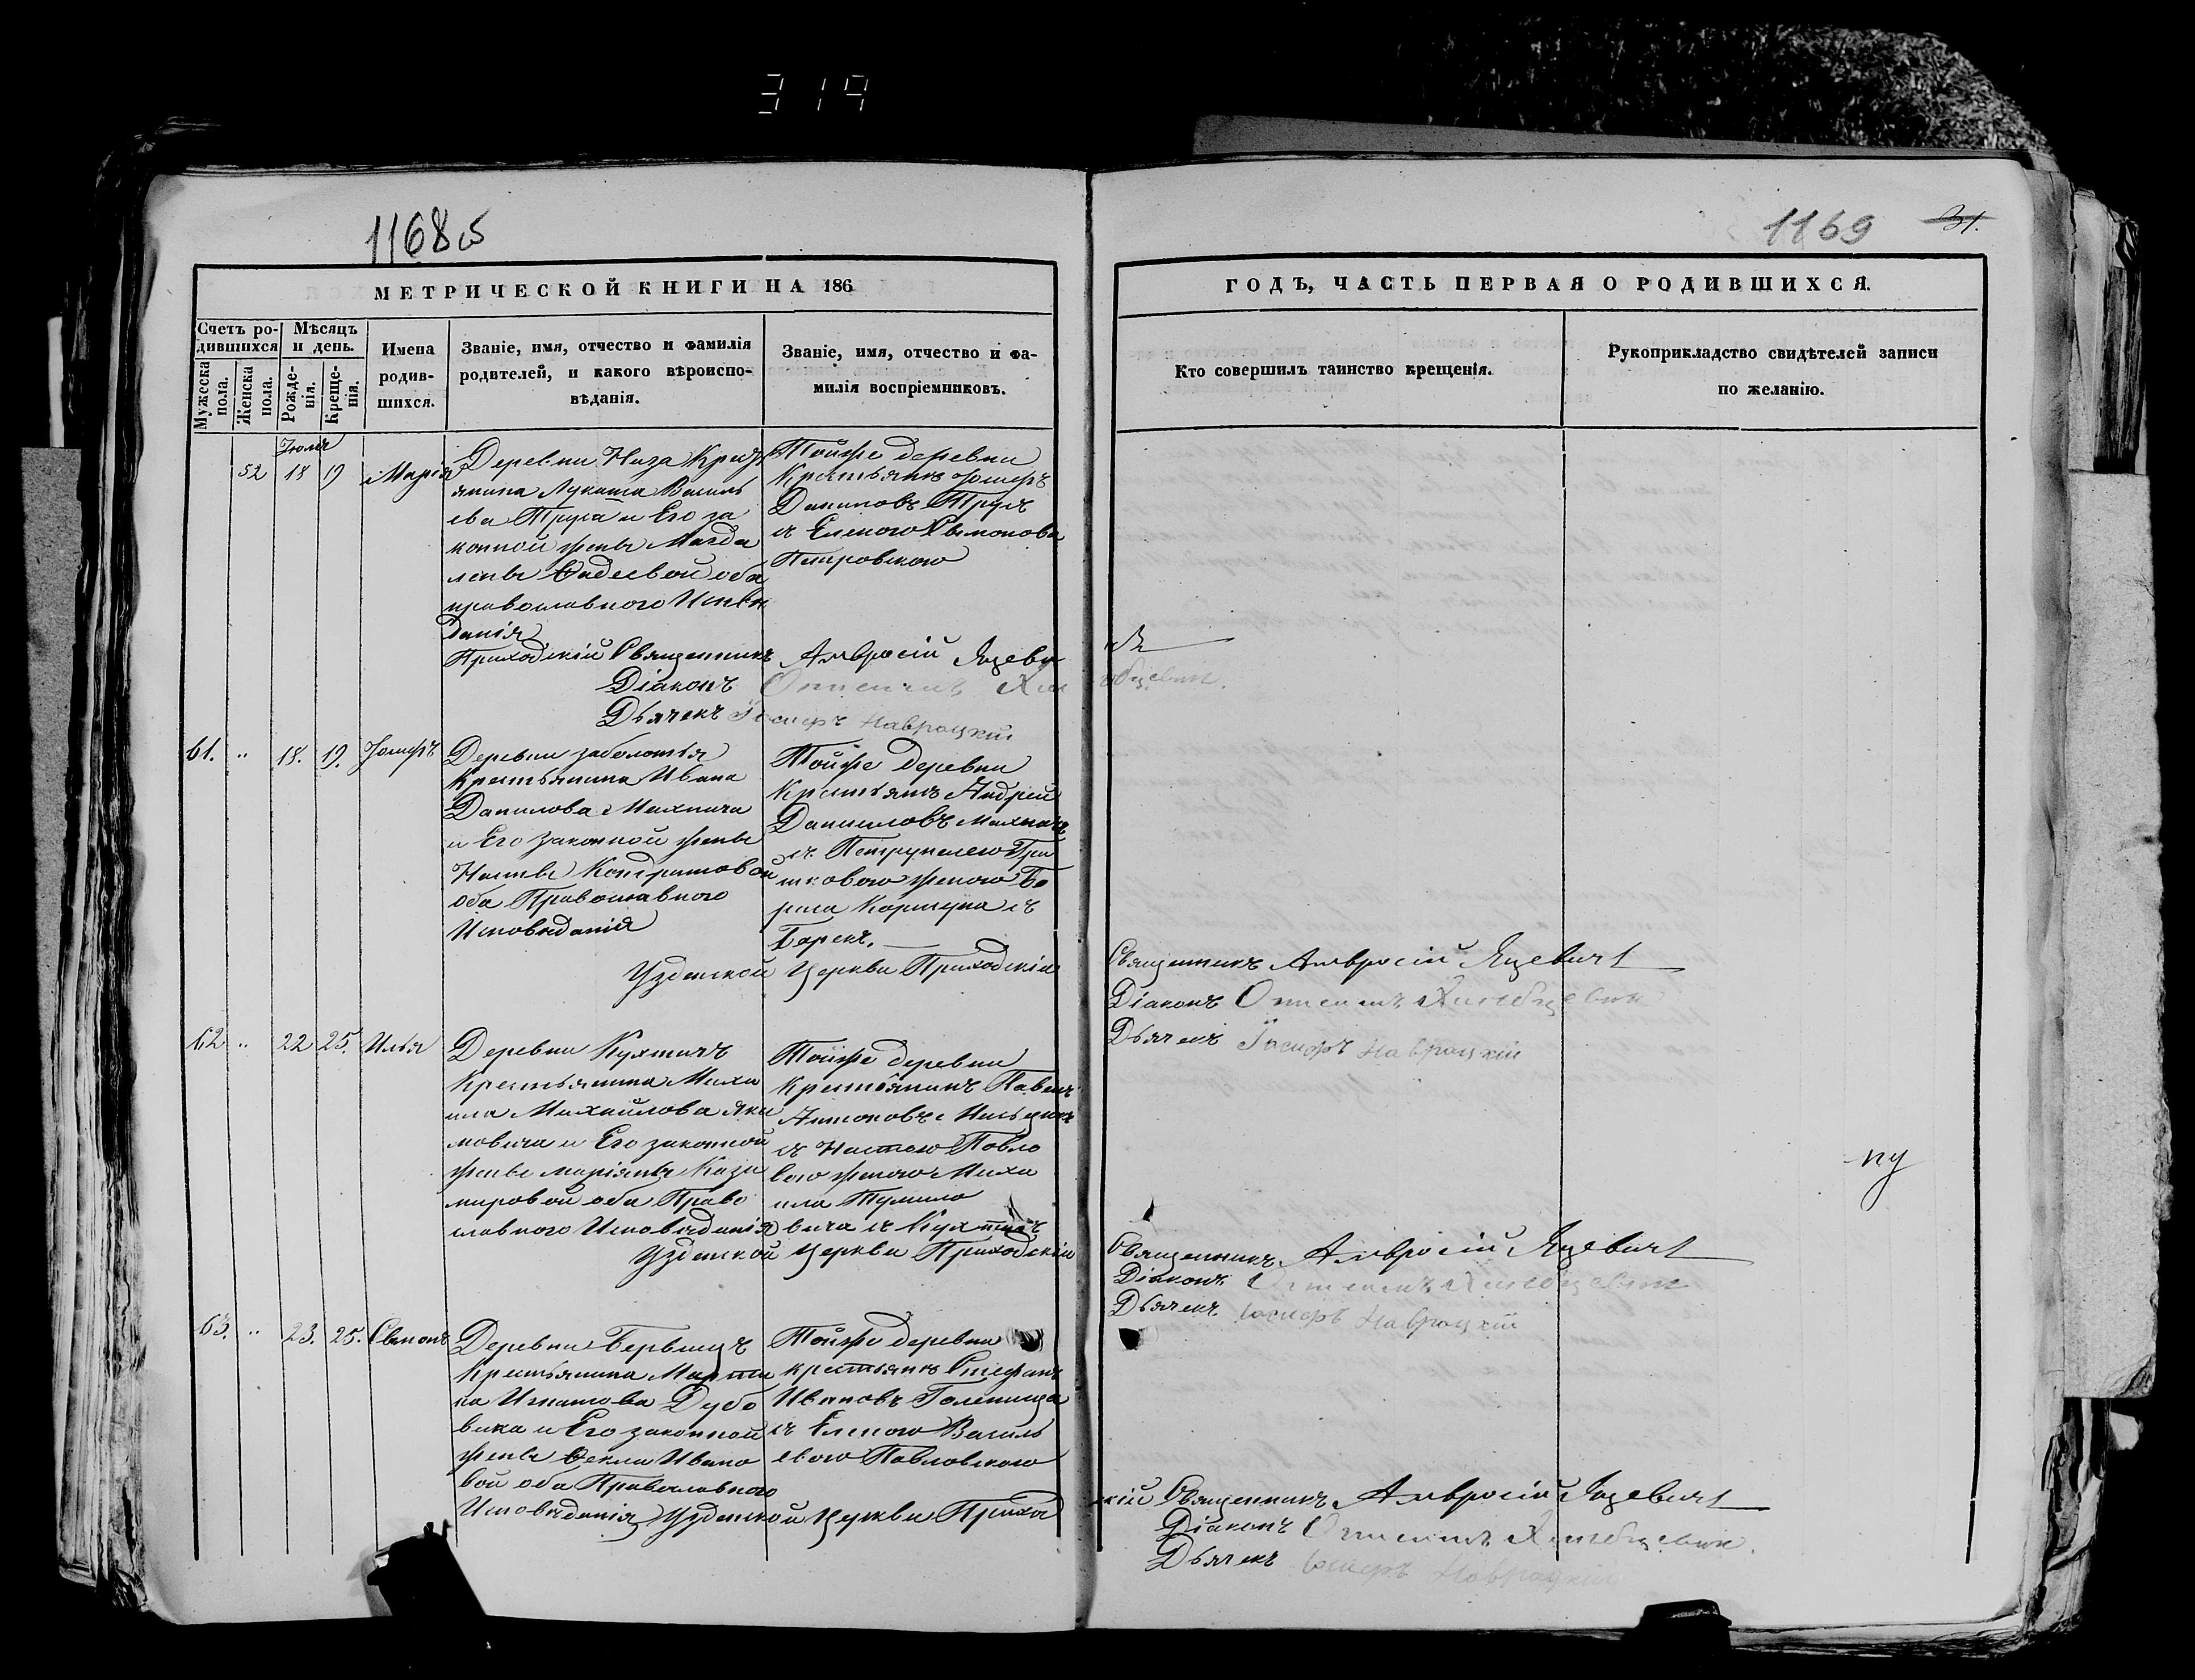 319
1168 об
1169
31.
МЕТРИЧЕСКОЙ КНИГИ НА 186
ГОДЪ, ЧАСТЬ ПЕРВАЯ О РОДИВШИХСЯ.
Счетъ ро-
дившихся
Мужеска
пола.
Женска
пола.
Мѣсяцъ
и день.
Рожде-
нія.
Креще-
нія.
Имена
родив-
шихся.
Званіе, имя, отчество и фамилія
родителей, и какого вѣроиспо-
вѣданія.
Званіе, имя, отчество и фа-
милія воспріемниковъ.
Кто совершилъ таинство крещенія.
Рукоприкладство свидѣтелей записи
по желанію.
Іюля
52 18 19 Марія
Деревни Низа Крестъ
янина Лукаша Василь
ева Труса и Его за
конной жены Магда
лены Фадеевой оба
православного Исповѣ
данія
Тойже деревни
Крестьянъ Іосифъ
Даниловъ Трусъ
съ Еленою Сымонова
Петровскою
Приходскій Священникъ Амвросій Яцевичъ
Діаконъ
Дьячекъ Іосифъ Навроцкій
61. " 18. 19. Іосифъ
Деревни Заболотья
Крестьянина Ивана
Данилова Махнача
и Его законной жены
Насты Кондратовой
оба Православного
Исповѣданія
Тойже деревни
Крестьянъ Андрей
Даниловъ Махначъ
съ Петрунелею Гри
шковою женою Бо
риса Коршуна съ
Борекъ.
Узденской Церкви Приходскій
Священникъ Амвросій Яцевичъ
Діаконъ
Дьячекъ Іосифъ Навроцкій
62 " 22 25. Илья
Деревни Кухтичъ
Крестьянина Миха
ила Михайлова Яки
мовича и Его законной
жены Маріяны Кази
мировой оба Право
славного Исповѣданія
Тойже деревни
Крестьянинъ Павелъ
Антоновъ
съ Настою Павло
вою женою Миха
ила Тумило
вича съ Кухтичъ
Узденской Церкви Приходскій
Священникъ Амвросій Яцевичъ
Діаконъ
Дьячекъ Іосифъ Навроцкій
63. " 23. 25. Сымонъ
Деревни
Крестьянина Марти
на Игнатова Дубо
вика и Его законной
жены Фекли Ивано
вой оба Православного
Исповѣданія
Тойже деревни
крестьянъ Стефанъ
Ивановъ Голенища
съ Еленою Василь
евою Павловскою
Узденской Церкви Приход
скій Священникъ Амвросій Яцевичъ
Діаконъ
Дьячекъ Іосифъ Навроцкій